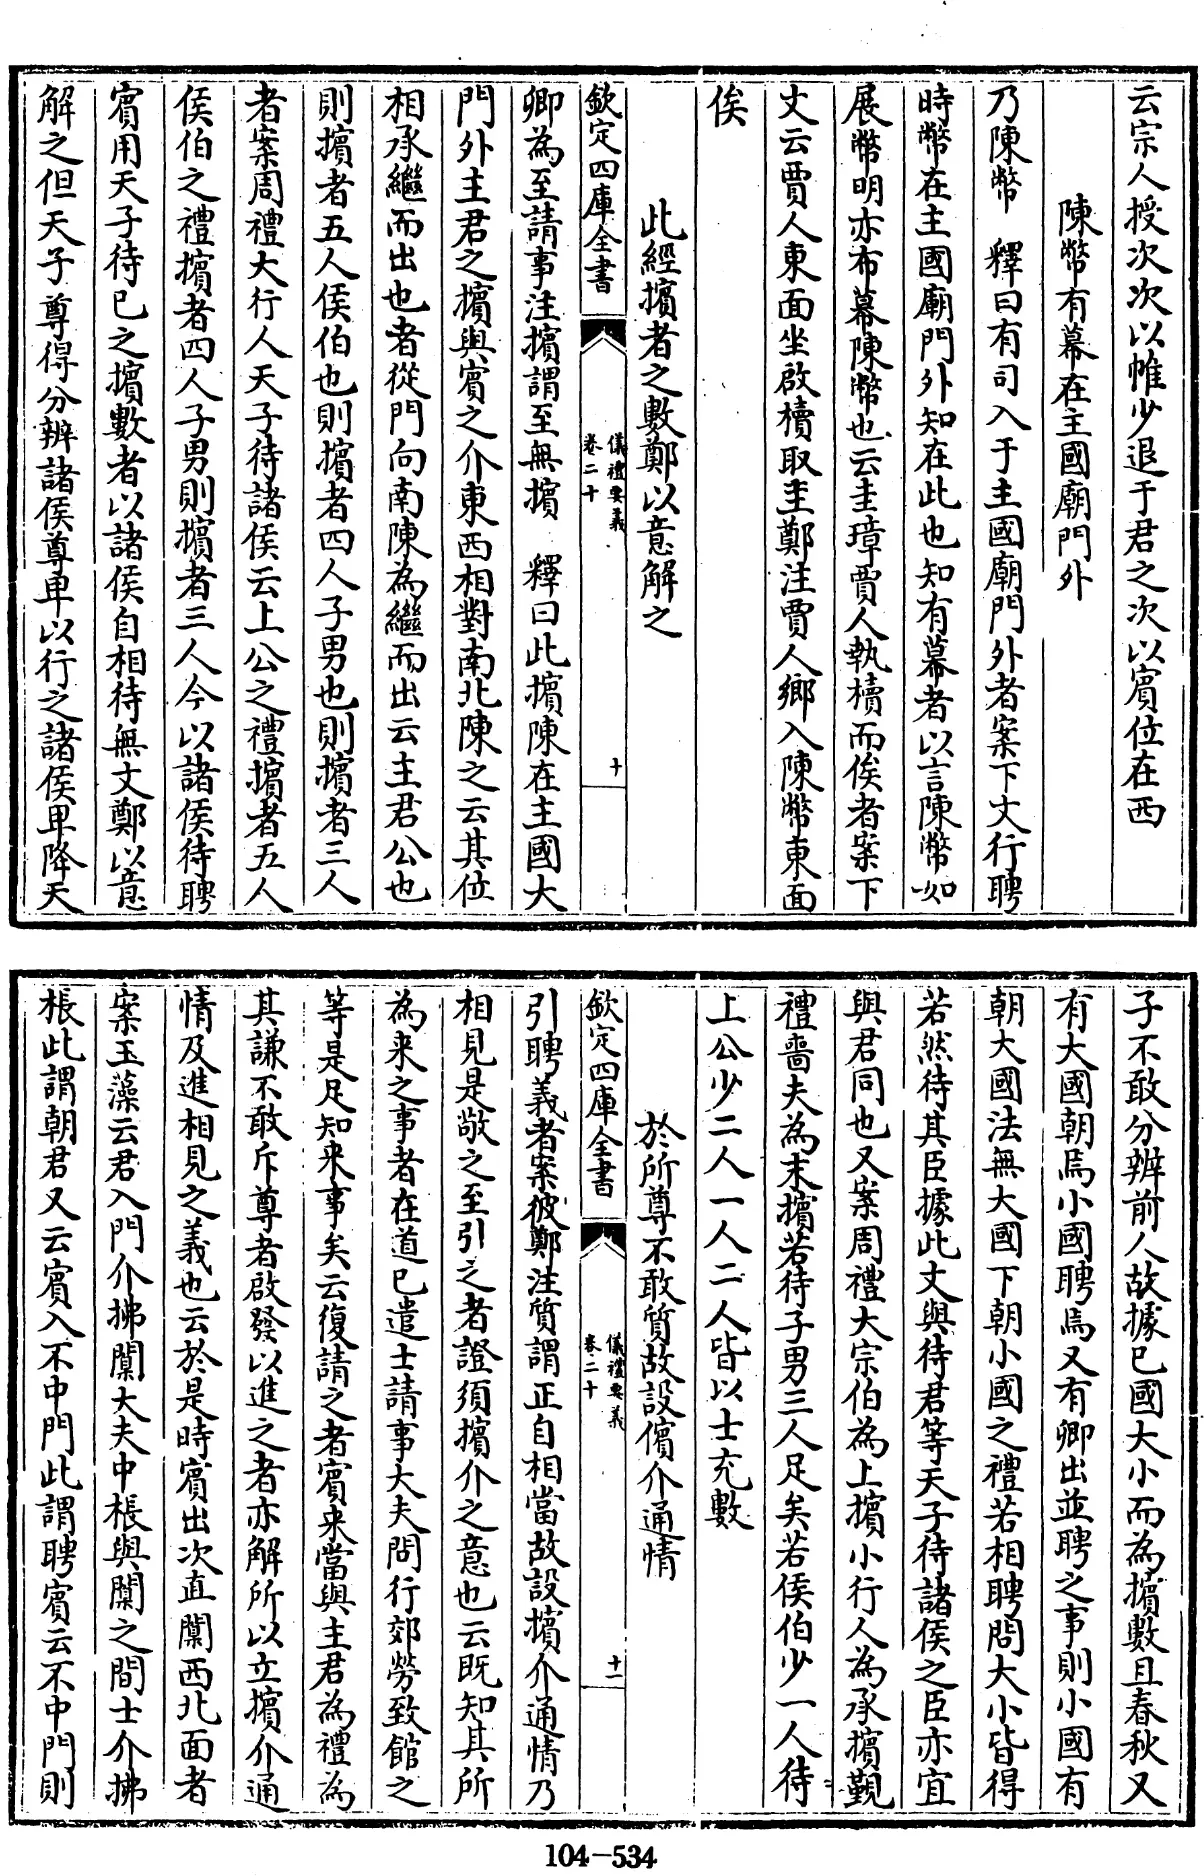 云宗人授次次以帷少退于君之次以賓位在西
陳幣有幕在主國廟門外
乃陳幣　釋曰有司入于主國廟門外者案下文行聘
時幣在主國廟門外知在此也知有幕者以言陳幣如
展幣明亦布幕陳幣也云圭璋賈人執櫝而俟者案下
文云賈人東面坐啟櫝取圭鄭注賈人鄉入陳幣東面
俟
此經擯者之數鄭以意解之
欽定四庫全書　儀禮要義卷二十　十
卿為至請事注擯謂至無擯　釋曰此擯陳在主國大
門外主君之擯與賓之介東西相對南北陳之云其位
相承繼而出也者從門向南陳為繼而出云主君公也
則擯者五人侯伯也則擯者四人子男也則擯者三人
者案周禮大行人天子待諸侯云上公之禮擯者五人
侯伯之禮擯者四人子男則擯者三人今以諸侯待聘
賓用天子待己之擯數者以諸侯自相待無文鄭以意
解之但天子尊得分辨諸侯尊卑以行之諸侯卑降天
子不敢分辨前人故據已國大小而為擯數且春秋又
有大國朝焉小國聘焉又有卿出並聘之事則小國有
朝大國法無大國下朝小國之禮若相聘問大小皆得
若然待其臣據此文與待君等天子待諸侯之臣亦宜
與君同也又案周禮大宗伯為上擯小行人為承擯覲
禮嗇夫為末擯若待子男三人足矣若侯伯少一人待
上公少二人一人二人皆以士充數
於所尊不敢質故設擯介通情
欽定四庫全書　儀禮要義卷二十　十一
引聘義者案彼鄭注質謂正自相當故設擯介通情乃
相見是敬之至引之者證須擯介之意也云既知其所
為来之事者在道已遣士請事大夫問行郊勞致館之
等是足知来事矣云復請之者賓来當與主君為禮為
其謙不敢斥尊者啟發以進之者亦解所以立擯介通
情及進相見之義也云於是時賓出次直闑西北面者
案玉藻云君入門介拂闑大夫中棖與闑之間士介拂
棖此謂朝君又云賓入不中門此謂聘賓云不中門則
104-534